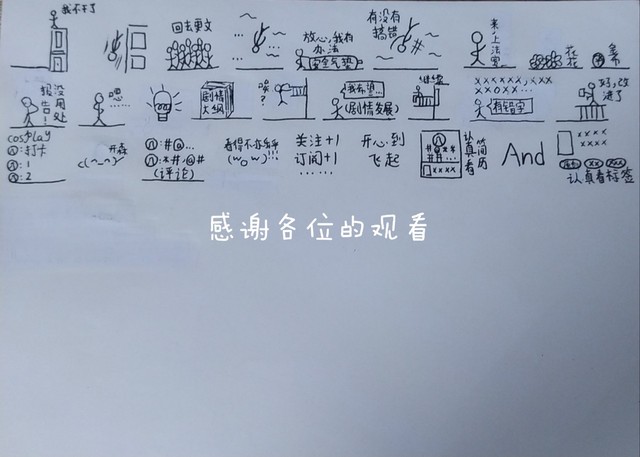 我不干了
回去更文
放心,我有
办法
安全气垫
有没有
搞错
#
来上法
报告!
没用处
嗯……
剧情
大纲
嗯?
我希望…
(剧情发展)
继续
××××××,×××
××○××…
有错字
好,改
进了
cosplay
①:打卡
①:1
①:2
开森
<(^⌒^)/
①:#@…
①:*#·@#
(评论)
看得不亦乐乎
(w o w)!!!
关注+1
订阅+1
……
开心到
飞起
认真看
简历
And
××××
××××
认真看标签
感谢各位的观看